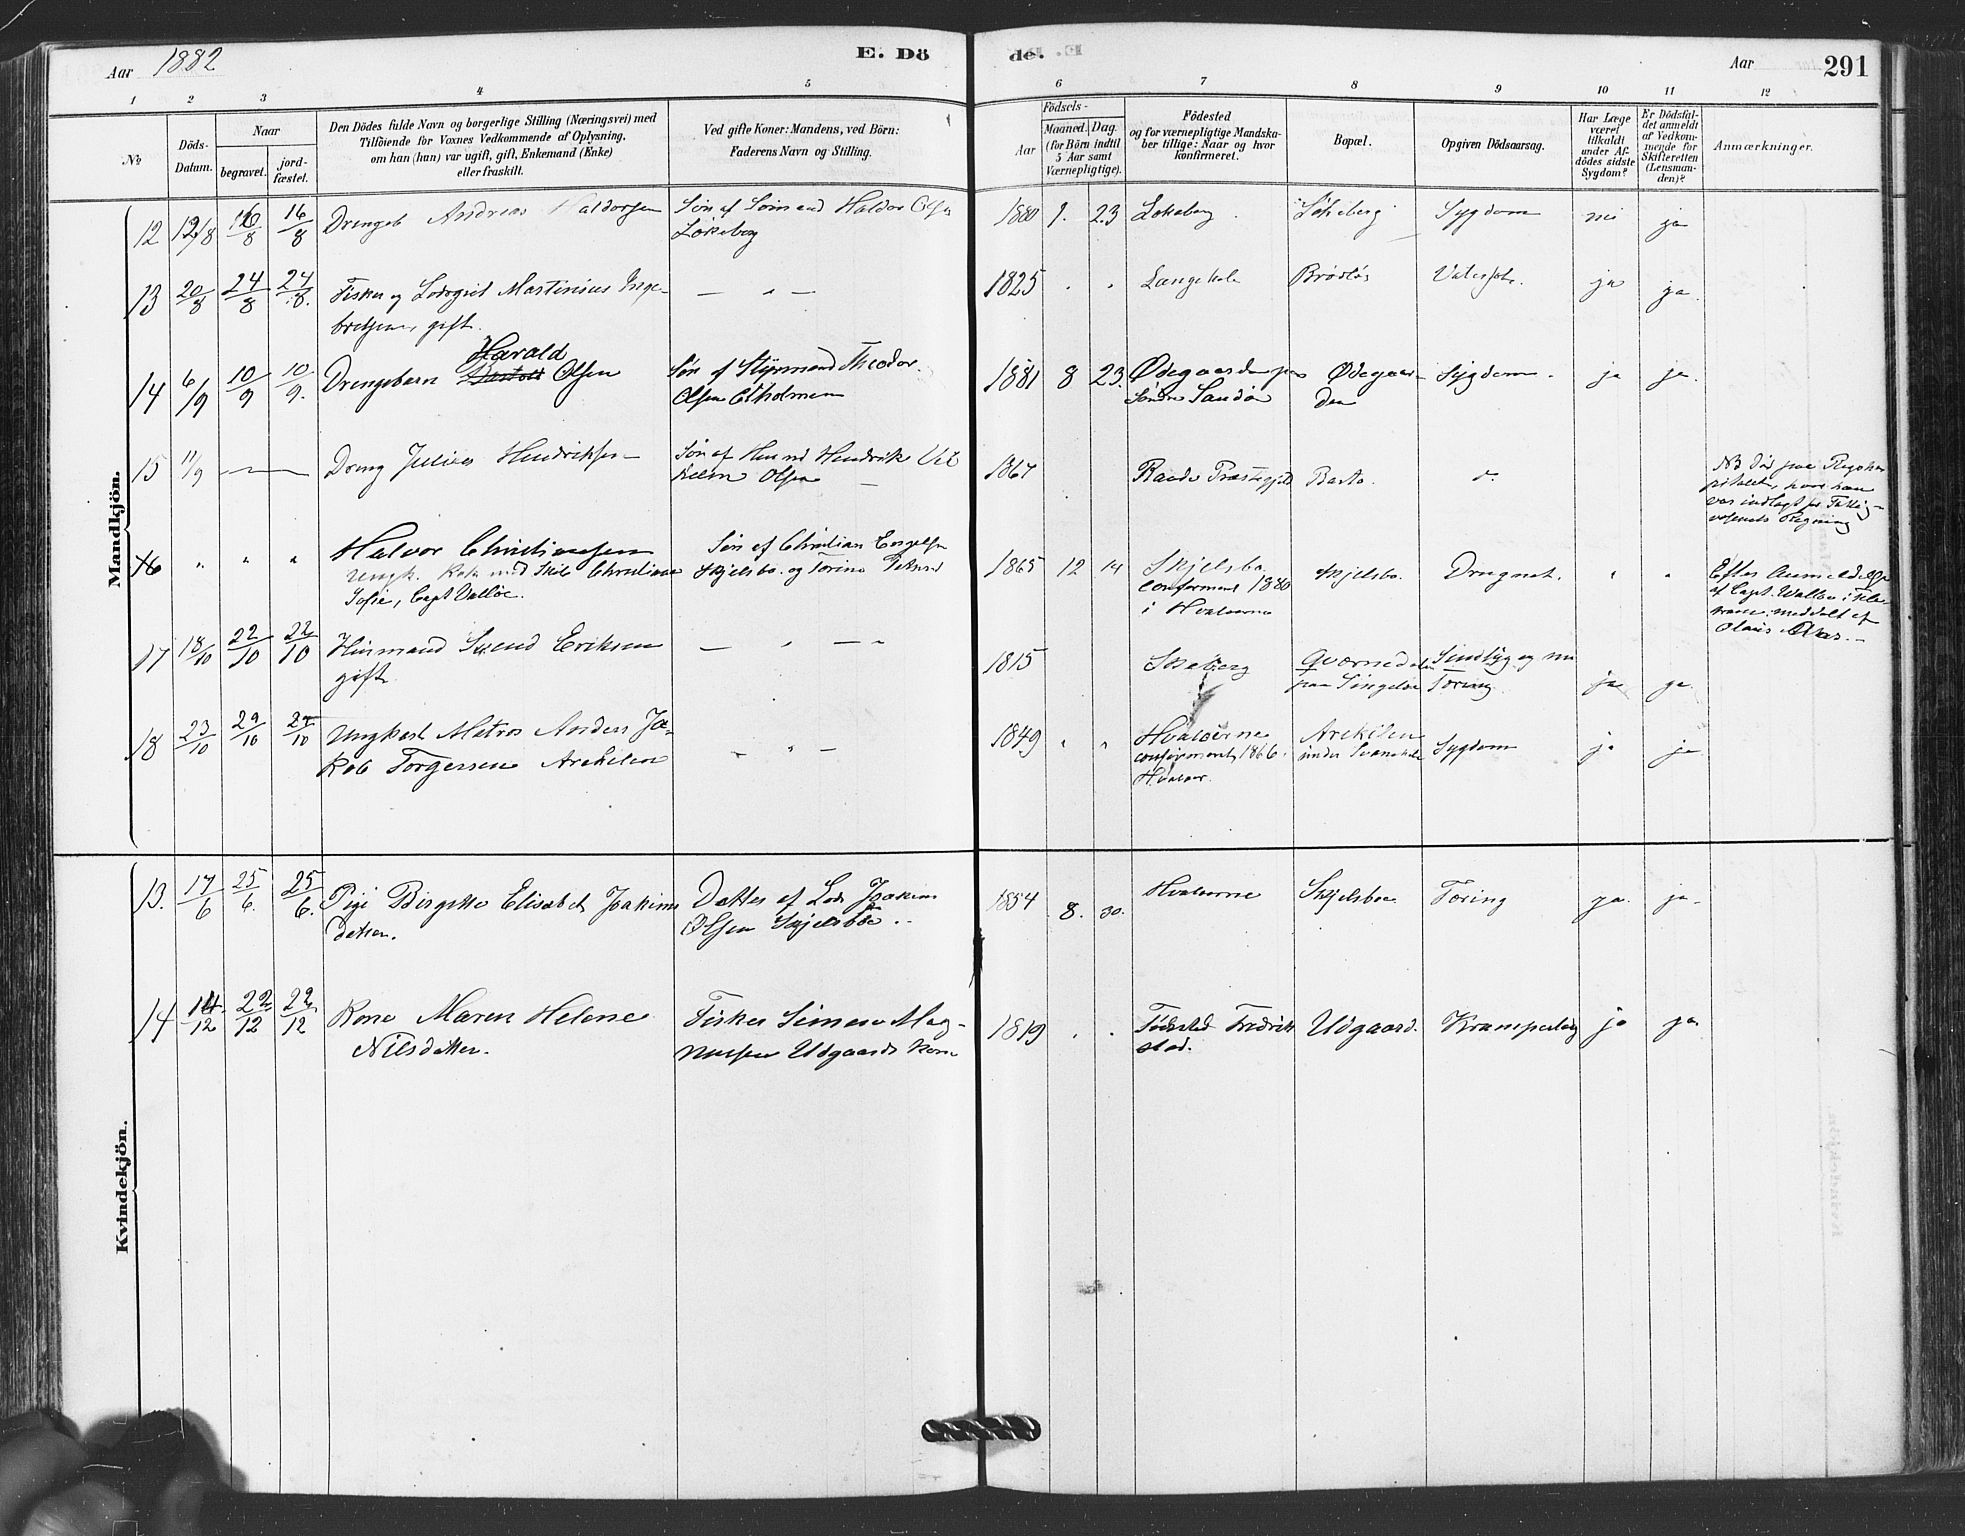 Aar 1882
E. Dö
de.
Aar
291
1 2 3 4 5
6 7 8 9 10 11 12
No
Döds-
Datum.
Naar
begravet.
jord-
fæstet.
Den Dödes fulde Navn og borgerlige Stilling (Næringsvei) med
Tilföiende for Voxnes Vedkommende af Oplysning,
om han (hun) var ugift, gift, Enkemand (Enke)
eller fraskilt.
Ved gifte Koner: Mandens, ved Börn:
Faderens Navn og Stilling.
Födsels-
Aar
Maaned. Dag.
(for Börn indtil
5 Aar samt
Værnepligtige).
Födested
og for værnepligtige Mandska-
ber tillige: Naar og hvor
konfirmeret.
Bopæl.
Opgiven Dödsaarsag.
Har Læge
været
tilkaldt
under Af-
dödes sidste
Sygdom?
Er Dödsfal-
det anmeldt
af Vedkom-
mende for
Skifteretten
(Lensman-
den)?
Anmærkninger.
Mandkjön.
12 12/8 16/8 16/8
Drengeb Andreas Haldorsen
Søn af Sømand Haldor Olsen
Løkeberg
1880 9. 23 Løkeberg. Løkeberg Sygdom nei ja
13 20/8 24/8 24/8.
Fisker og Lodsgut Martinius Inge-
bretsen, gift.
— " —
1825 " " Langekile Brødløs ja ja.
14 6/9 10/9 10/9.
Drengebarn Harald Olsen
Søn af Styrmand Theodor
Olsen Edholmen
1881 8 23. Ødegaarden paa
Søndre Sandø
Ødegaar-
den
Sygdom. ja ja.
15 11/9 —
Dreng Julius Hendriksen
Søn af Husmd Hendrik Vil
helm Olsen
1867 Raade Præstegjeld Bastø.
NB død paa Rigshos
pitalet, hvor han
var indlagt for Fattig-
væsenets Regning
16 " " "
Halvor Christiansen
Ungk. Kok med Skib Christiane
Sofie, Capt Valløe.
Søn af Christian Engelsen
Skjelsbo. og Torine
1865 12 14 Skjelsbo.
confirmeret 1880
i Hvaløerne
Skjelsbo. Druknet. " "
Efter Anmeldelse
af Capt. Walløe i
meddelt af
Olaus
17 18/10 22/10 22/10
Husmand Svend Eriksen
gift.
— " — "
1815 Skeberg
Qværnedalen
paa Singeløe
og
Tæring ja ja.
18 23/10 29/10 29/10
Ungkarl Matros Anders Ja-
kob Torgersen Arekilen
— " —
1849 " " Hvaløerne
confirmeret 1866.
Hvaløer.
Arekilen
under
Sygdom ja ja.
Kvindekjön.
13. 17/6 25/6. 25/6.
Pige Birgitte Elisabeth Joakims
datter.
Datter af Lods Joakim
Olsen Skjelsbøe.
1854 8. 30. Hvaløerne Skjelsboe. Tæring ja. ja.
14 14/12 22/12 22/12
Kone Maren Helene
Nilsdatter.
Fisker Simen Mag-
nusen Udgaards Kone
1819 " " Fødested Fredrik
stad.
Udgaard. ja ja.